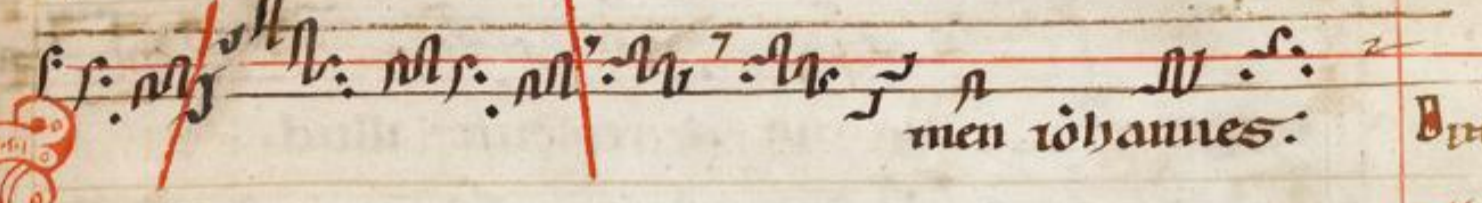 men iohannes.